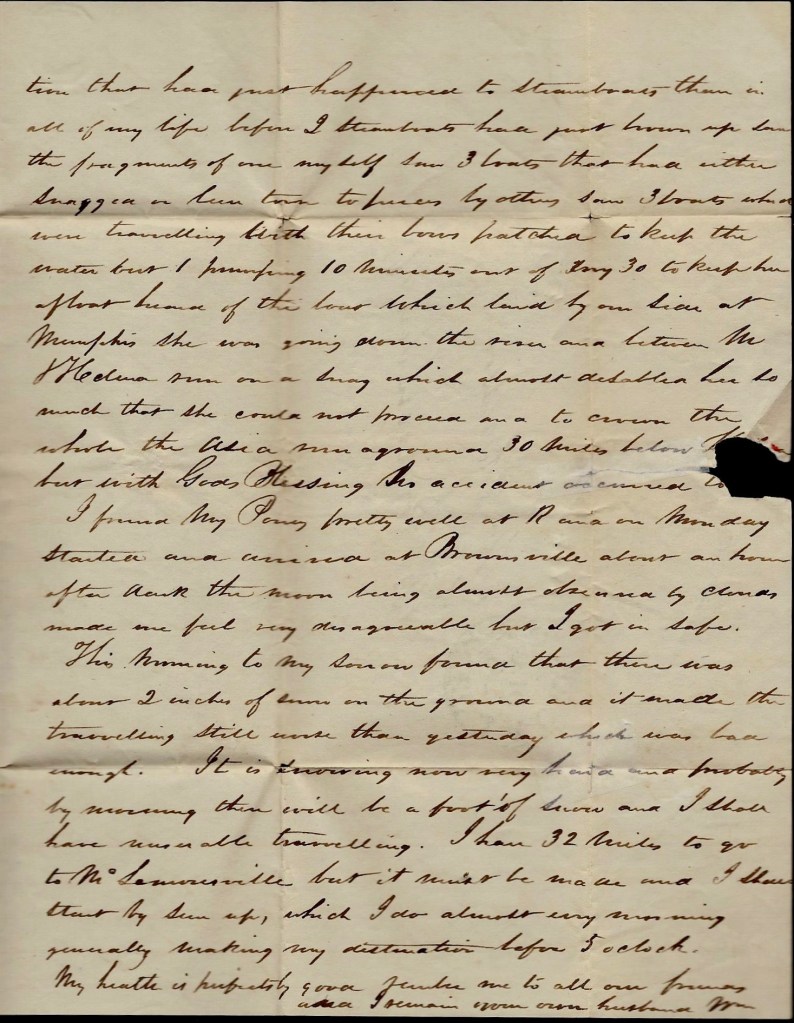 tion that had just happened to steamboats than in
all of my life before 2 steamboats had just blown up saw
the fragments of one myself saw 3 boats that had either
snagged or been torn to pieces by others saw 3 boats which
were travelling with their bows patched to keep the
water out 1 pumping 10 minutes out of every 30 to keep her
afloat heard of the boat which laid by our side at
Memphis she was going down the river and between M
& Helena run on a snag which almost disabled her so
much that she could not proceed and to crown the
whole the Asia run aground 30 miles below
but with Gods Blessing no accident occurred to
I found my Poney pretty well at R and on Monday
started and arrived at Brownsville about an hour
after dark the moon being almost obscured by clouds
made me feel very disagreeable but I got in safe.
This morning to my sorrow found that there was
about 2 inches of snow on the ground and it made the
travelling still worse than yesterday which was bad
enough. It is snowing now very hard and probably
by morning there will be a foot of snow and I shall
have miserable travelling. I have 32 miles to go
to McLemoresville but it must be made and I shall
start by sun up, which I do almost every morning
generally making my destination before 5 oclock.
My health is perfectly good remember me to all our friends
and I remain your own husband Wm